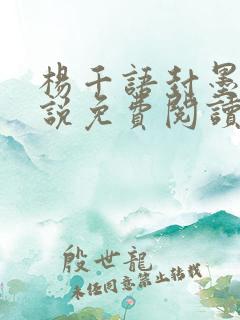 楊千語封墨
說免費閱讀
殷世龍
未任同意禁止轉載